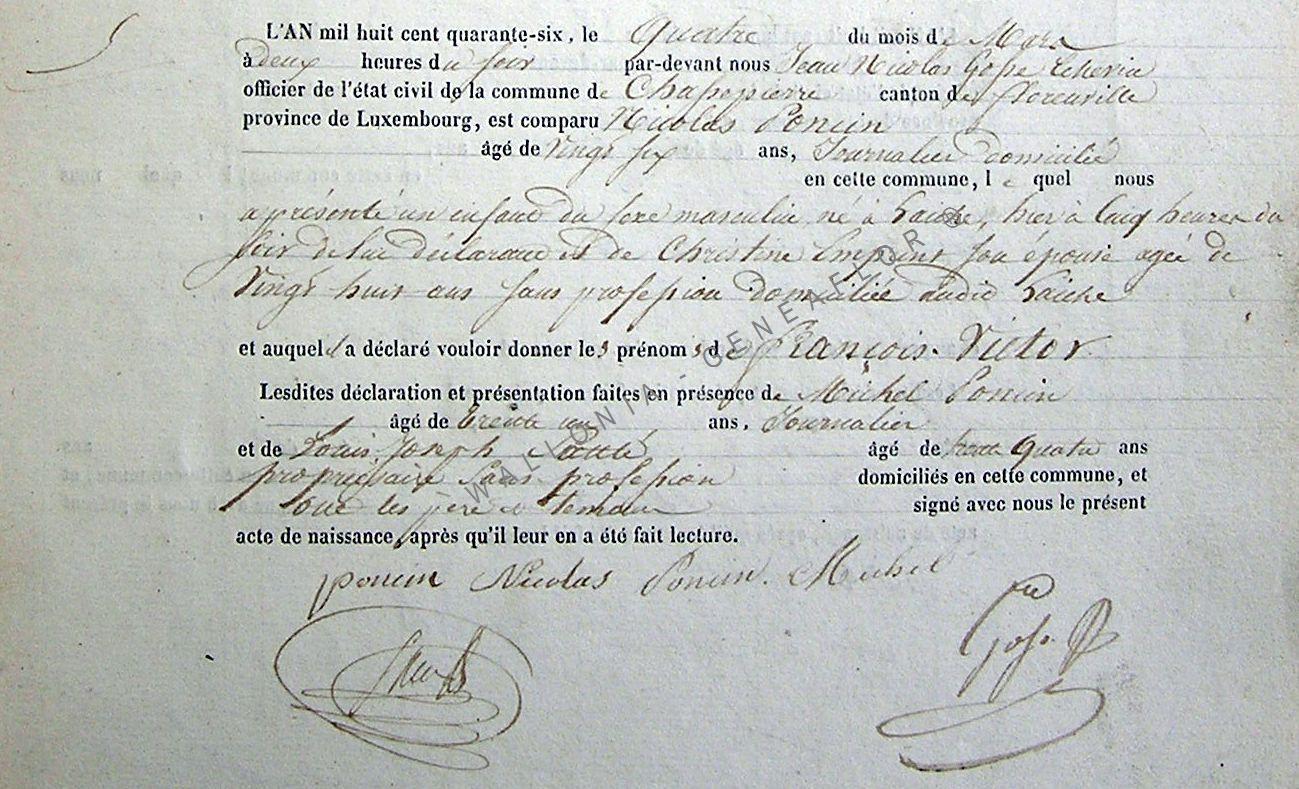 5
L'AN mil huit cent quarante-six, le Quatre du mois de Mars
à deux heures du soir par-devant nous Jean Nicolas Gosse Echevin
officier de l'état civil de la commune de Chassepierre canton de Florenville
province de Luxembourg, est comparu Nicolas Poncin
âgé de vingt six ans, Journalier domicilié
en cette commune, le quel nous
a présenté un enfant du sexe masculin né à Laiche, hier à Cinq heures du
soir de lui déclarant et de Christine son épouse agée de
Vingt huit ans sans profession domiciliée audit Laiche
et auquel il a déclaré vouloir donner les prénoms de François-Victor
Lesdites déclaration et présentation faites en présence de Michel Poncin
âgé de trente un ans, Journalier
et de Louis Joseph âgé de trente Quatre ans
propriétaire sans profession domiciliés en cette commune, et
ont les père et témoins signé avec nous le présent
acte de naissance, après qu'il leur en a été fait lecture.
poncin Nicolas Poncin Michel
Gosse
WALLONIA - GENEALOR ©